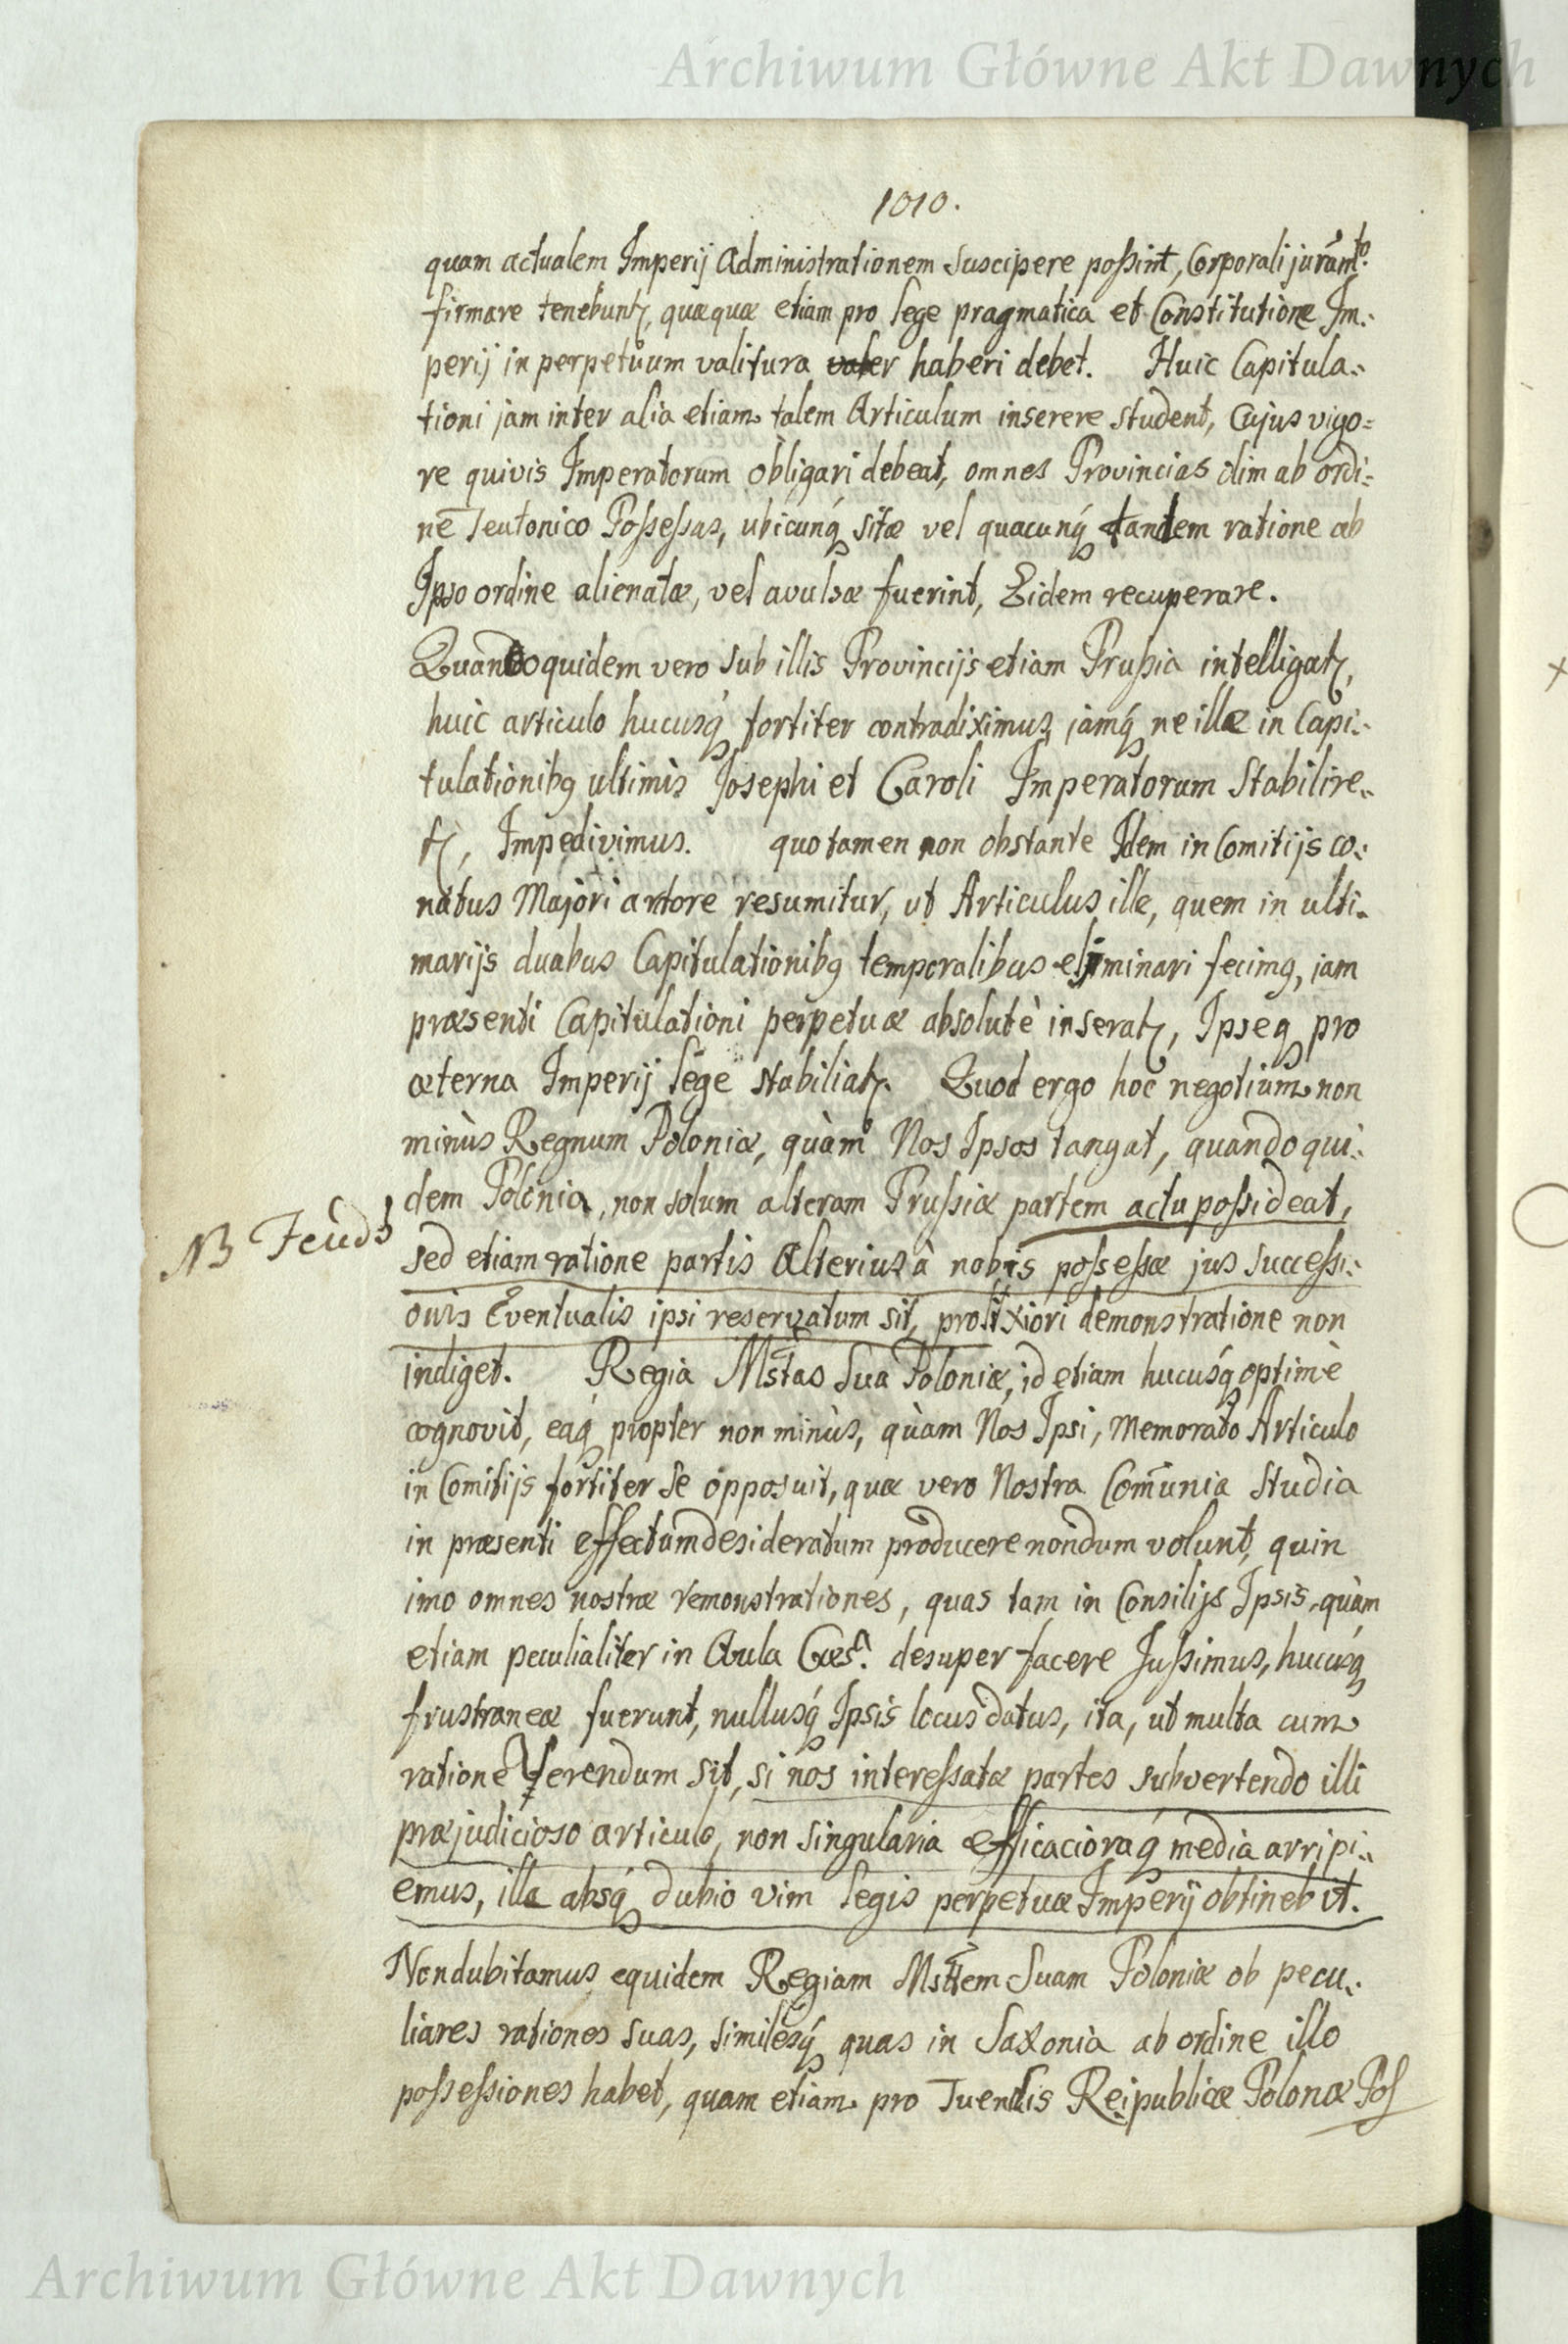 Archiwum Główne Akt Dawnych
1010.
quam actualem Imperij Administrationem suscipere possint, Corporali juramto
firmare tenebuntr, quæquæ etiam pro Lege pragmatica et Constitutione Im:
perij in perpetuum valitura valer haberi debet. Huic Capitula:
tioni jam inter alia etiam talem Articulum inserere student, Cujus vigo=
re quivis Imperatorum obligari debeat, omnes Provincias olim ab ordi:
ne Teutonico Possessas, ubicunq sitæ vel quacunq tandem ratione ab
Ipso ordine alienatæ, vel avulsæ fuerint, Eidem recuperare.
Quandoquidem vero sub illis Provincijs etiam Prussia intelligatr,
huic articulo hucusq fortiter contradiximus, jamq ne ille in Capi:
tulationibq ultimis Josephi et Caroli Imperatorum Stabilire:
tr, Impedivimus. quo tamen non obstante Idem in Comitijs co:
natus Majori ardore resumitur, ut Articulus ille, quem in ulti:
marijs duabus Capitulationibq temporalibus eliminari fecimq, iam
præsenti Capitulationi perpetuæ absolutè inseratr, Ipseq pro
æterna Imperij Lege stabiliatr. Quod ergo hoc negotium non
minùs Regnum Poloniæ, quàm Nos Ipsos tangat, quandoqui:
dem Polonia, non solum alteram Prussiæ partem actu possideat,
NB Feud
sed etiam ratione partis Alterius à nobis possessæ jus successi:
onis Eventualis ipsi reservatum sit, prolixiori demonstratione non
indiget. Regia Mstas Sua Poloniæ, id etiam hucusq optimè
cognovit, eaq propter non minùs, quàm Nos Ipsi, memorato Articulo
in Comitijs fortiter se opposuit, quæ vero Nostra Com̄unia Studia
in præsenti effectum desideratum producere nondum volunt, quin
imo omnes nostræ remonstrationes, quas tam in Consilijs Ipsis, quàm
etiam peculialiter in Aula Cæs. desuper facere Jussimus, hucusq
frustraneæ fuerunt, nullusq Ipsis locus datus, ita, ut multa cum
ratione Verendum sit, si nos interessatæ partes subvertendo illi
præjudicioso articulo, non singularia efficacioraq media arripi:
emus, ille absq dubio vim Legis perpetuæ Imperij obtinebit.
Non dubitamus equidem Regiam Msttem Suam Poloniæ ob pecu:
liares rationes suas, similesq quas in Saxonia ab ordine illo
possessiones habet, quam etiam pro Tuendis Reipublicæ Polonæ Pos
Archiwum Główne Akt Dawnych